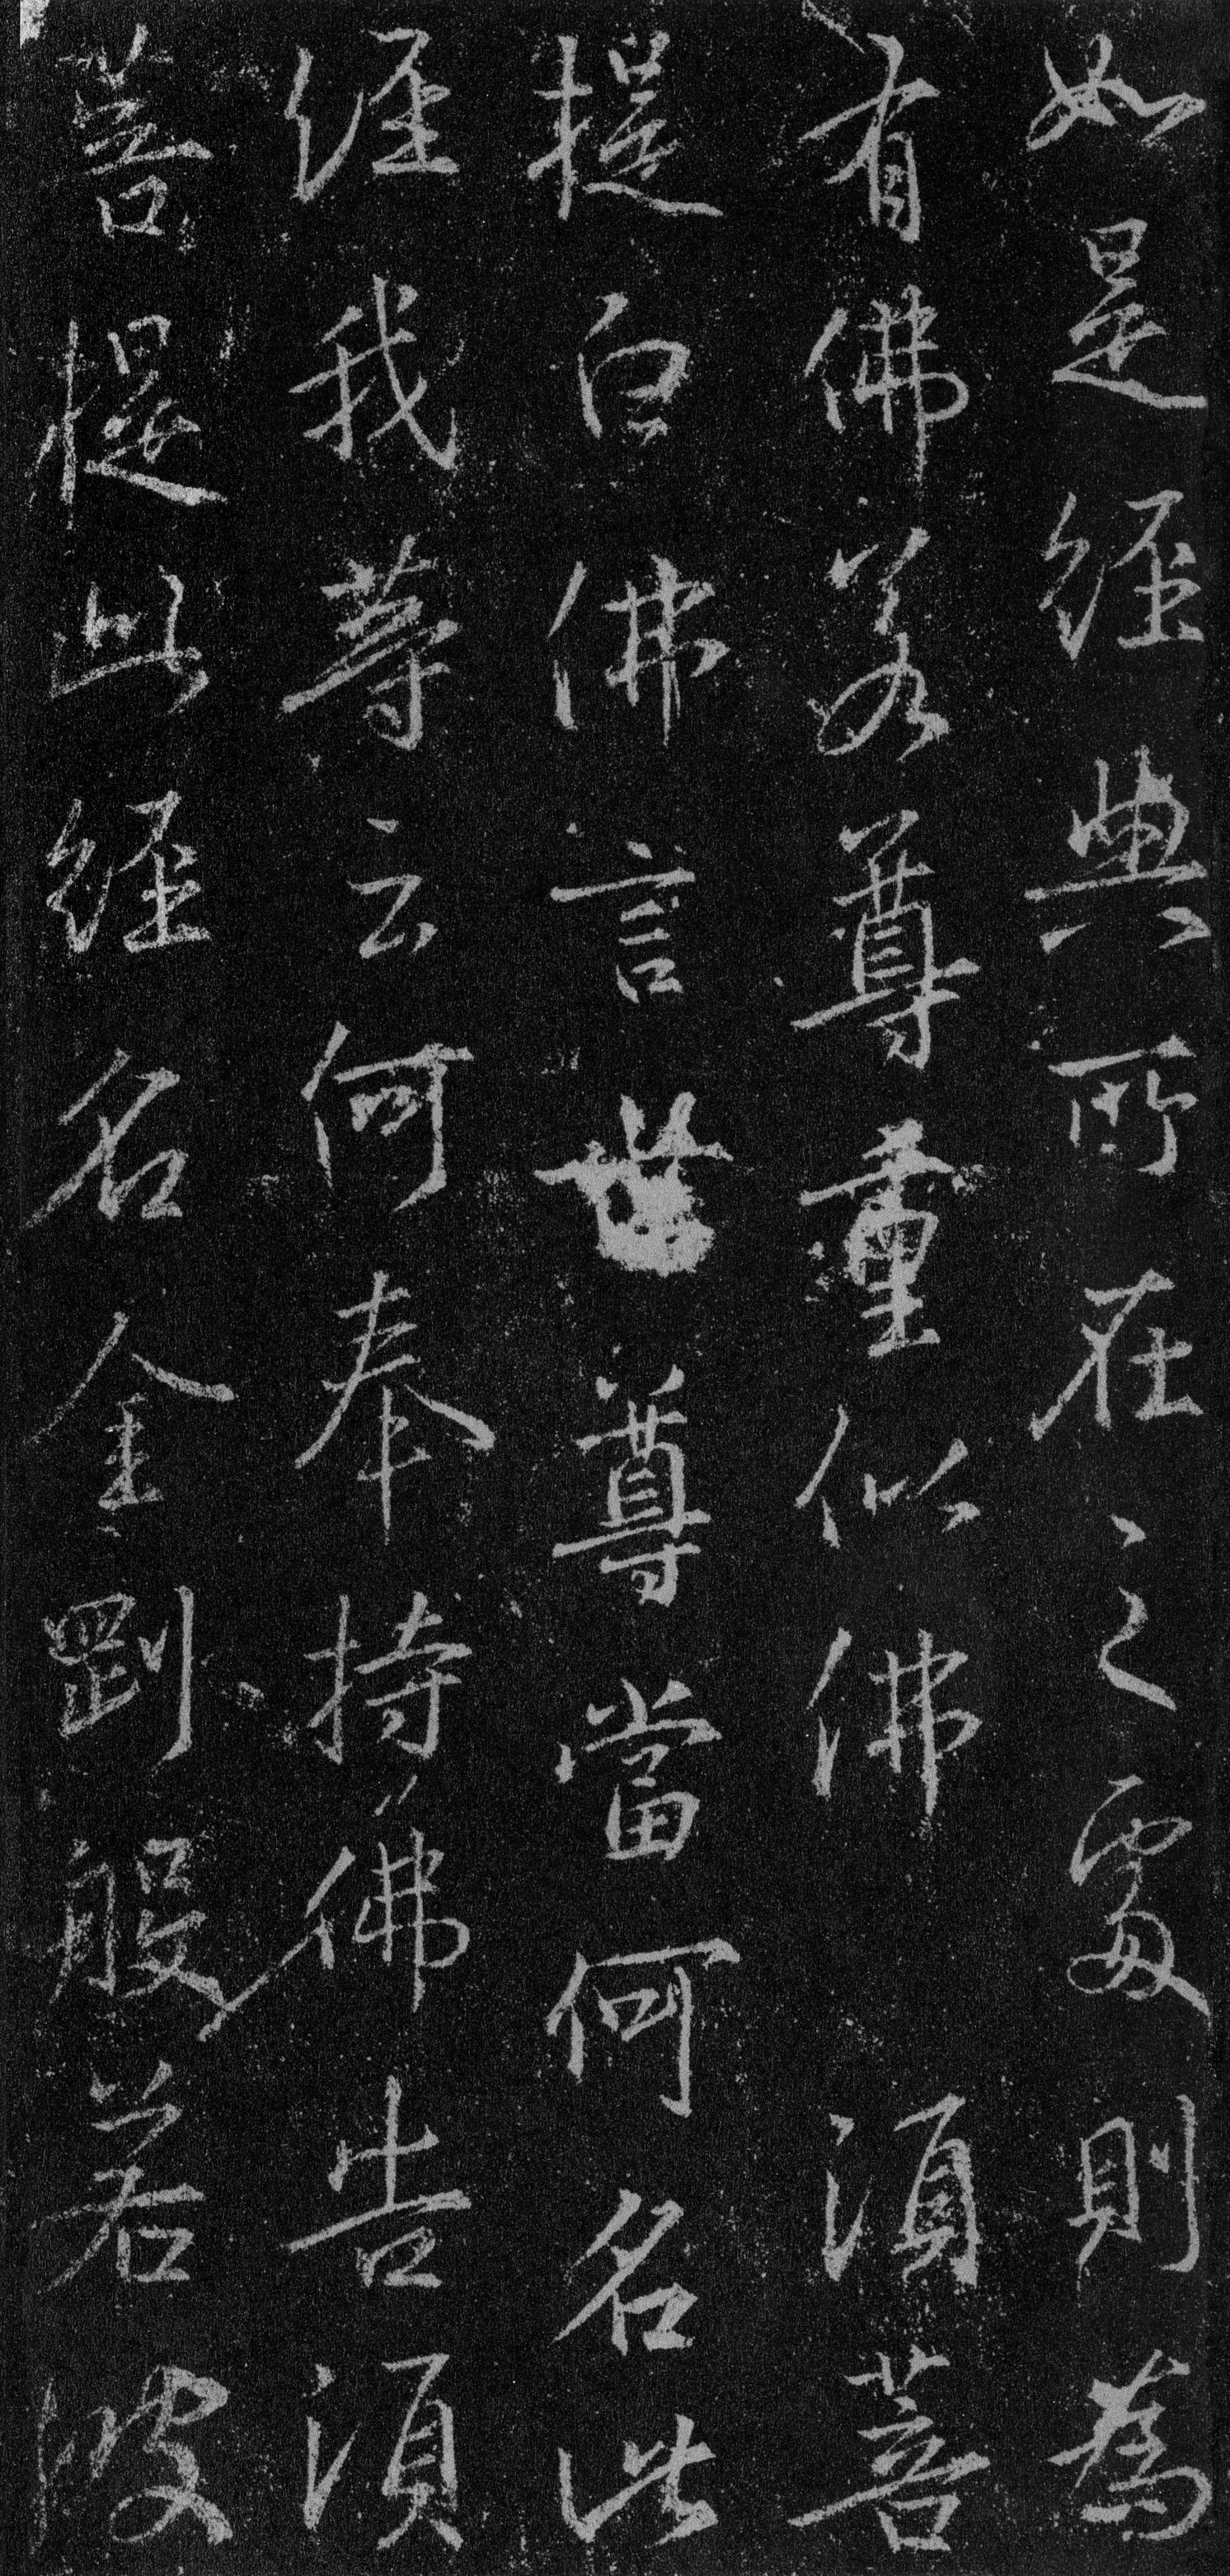 如是經典所在々之處則為
有佛若尊重似佛 須菩
提白佛言世尊當何名此
經我等云何奉持佛告須
菩提此經名金剛般若波